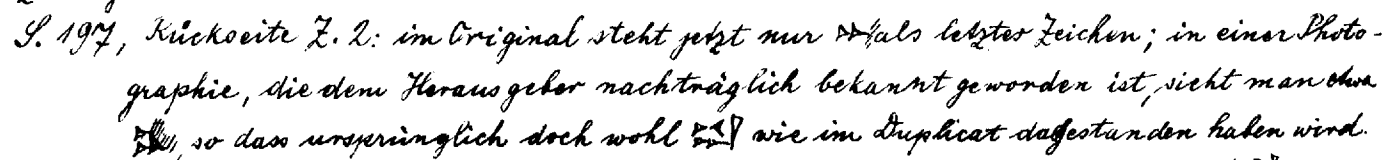 S. 197, Rückseite Z. 2: im Original steht jetzt nur als letztes Zeichen; in einer Photo-
graphie, die dem Herausgeber nachträglich bekannt geworden ist, sieht man etwa
, so dass ursprünglich doch wohl wie im Duplicat dagestanden haben wird.